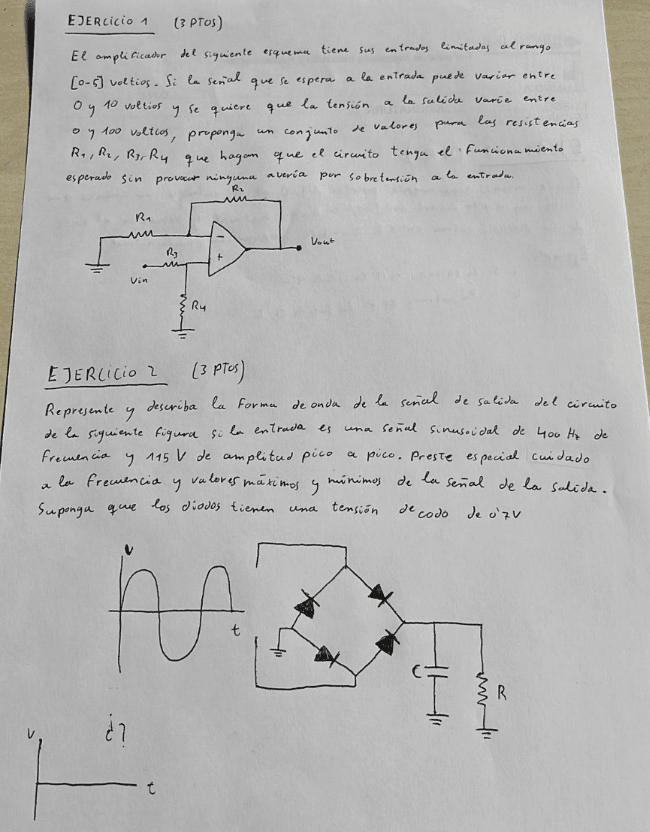 EJERCICIO 1 (3 PTOS)
El amplificador del siguiente esquema tiene sus entradas limitadas al rango
[0-5] voltios. Si la señal que se espera a la entrada puede variar entre
0 y 10 voltios y se quiere que la tensión a la salida varíe entre
0 y 100 voltios, proponga un conjunto de valores para las resistencias
R1, R2, R3, R4 que hagan que el circuito tenga el funcionamiento
esperado sin provocar ninguna avería por sobretensión a la entrada.
R2
R1
-
Vout
R3
+
Vin
R4
EJERCICIO 2 (3 PTOS)
Represente y describa la forma de onda de la señal de salida del circuito
de la siguiente figura si la entrada es una señal sinusoidal de 400 Hz de
frecuencia y 115 V de amplitud pico a pico. Preste especial cuidado
a la frecuencia y valores máximos y mínimos de la señal de la salida.
Suponga que los diodos tienen una tensión de codo de 0'7V
V
t
C
R
¿?
V
t